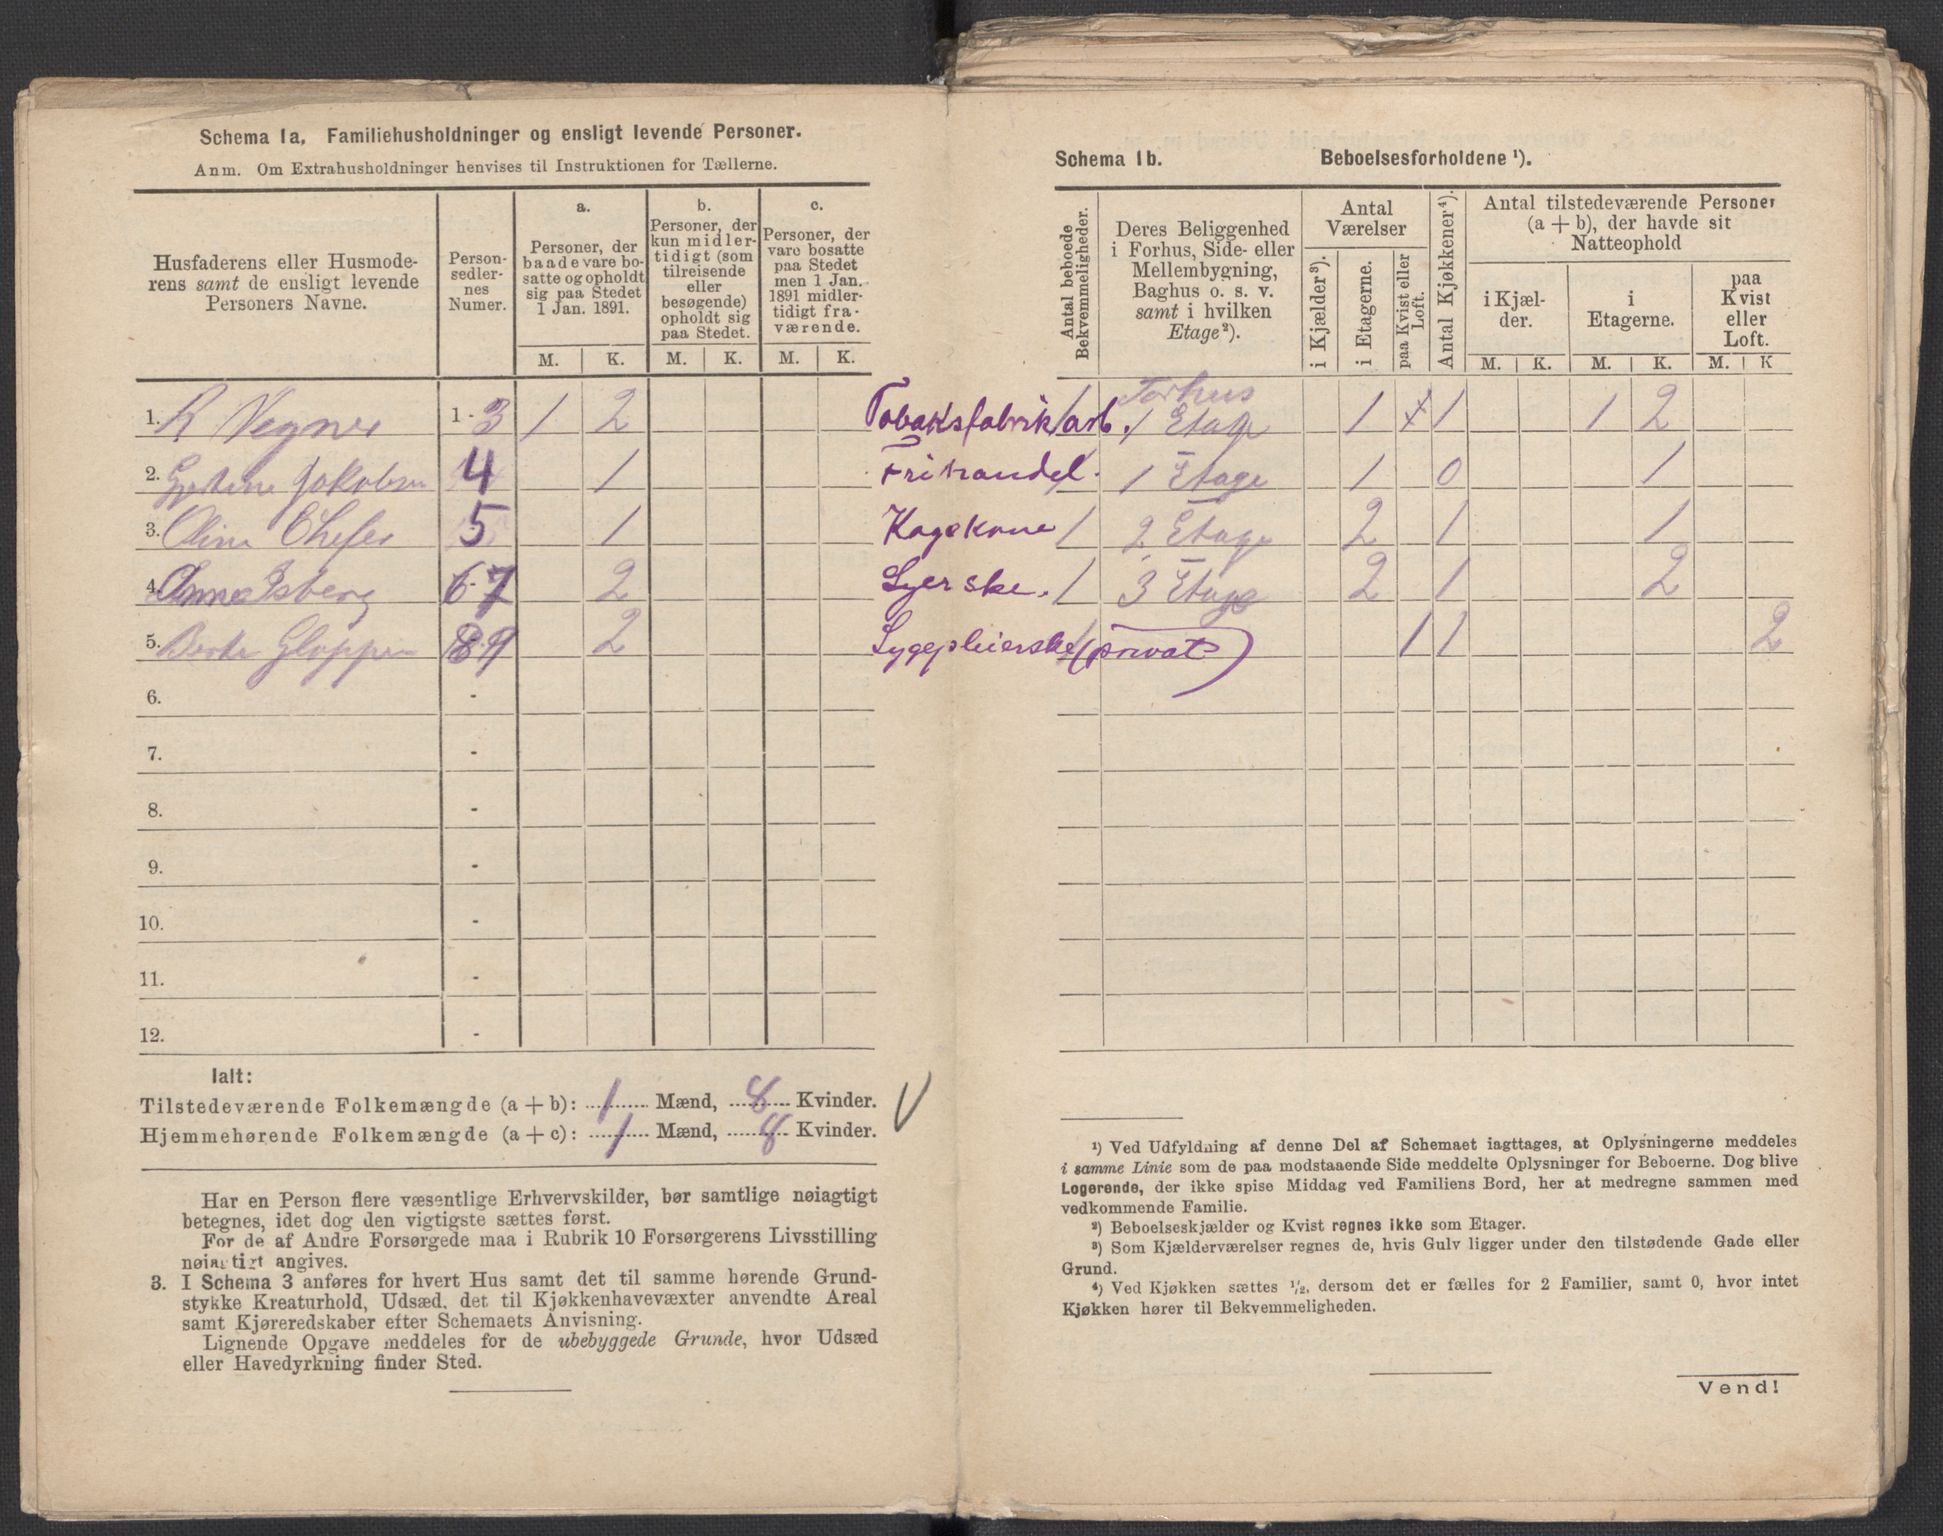 Schema 1a, Familiehusholdninger og ensligt levende Personer.
Anm. Om Extrahusholdninger henvises til Instruktionen for Tællerne.
Husfaderens eller Husmode-
rens samt de ensligt levende
Personers Navne.
Person-
sedler-
nes
Numer.
a.
Personer, der
baade vare bo-
satte og opholdt
sig paa Stedet
1 Jan. 1891.
b.
Personer, der
kun midler-
tidigt (som
tilreisende
eller
besøgende)
opholdt sig
paa Stedet.
c.
Personer, der
vare bosatte
paa Stedet
men 1 Jan.
1891 midler-
tidigt fra-
værende.
M. K. M. K. M. K.
1. R Vegner 1-3 1 2
2. Jakobsen 4 1
3. Oline 5 1
4. Anne Isberg 6-7 2
5. Berte Gloppen 8-9 2
6. -
7. -
8. -
9. -
10. -
11. -
12. -
Ialt:
Tilstedeværende Folkemængde (a + b): 1 Mænd, 8 Kvinder.
Hjemmehørende Folkemængde (a + c): 1 Mænd, 8 Kvinder.
Har en Person flere væsentlige Erhvervskilder, bør samtlige nøiagtigt
betegnes, idet dog den vigtigste sættes først.
For de af Andre Forsørgede maa i Rubrik 10 Forsørgerens Livsstilling
nøiagtigt angives.
3. I Schema 3 anføres for hvert Hus samt det til samme hørende Grund-
stykke Kreaturhold, Udsæd, det til Kjøkkenhavevæxter anvendte Areal
samt Kjøreredskaber efter Schemaets Anvisning.
Lignende Opgave meddeles for de ubebyggede Grunde, hvor Udsæd
eller Havedyrkning finder Sted.
Schema 1b. Beboelsesforholdene ¹).
Antal beboede
Bekvemmeligheder.
Deres Beliggenhed
i Forhus, Side- eller
Mellembygning,
Baghus o. s. v.
samt i hvilken
Etage²).
Antal
Værelser
i Kjælder³).
i Etagerne.
paa Kvist eller
Loft.
Antal Kjøkkener⁴).
Antal tilstedeværende Personer
(a + b), der havde sit
Natteophold
i Kjæl-
der.
i
Etagerne.
paa
Kvist
eller
Loft.
M. K. M. K. M. K
Forhus
Tobaksfabrikarb. 1 1 Etage 1 1 1 2
Frihandel. 1 1 Etage 1 0 1
Kagekone 1 2 Etage 2 1 1
Syerske. 1 3 Etage 2 1 2
Sygepleierske (privat) 1 1 2
¹) Ved Udfyldning af denne Del af Schemaet iagttages, at Oplysningerne meddeles
i samme Linie som de paa modstaaende Side meddelte Oplysninger for Beboerne. Dog blive
Logerende, der ikke spise Middag ved Familiens Bord, her at medregne sammen med
vedkommende Familie.
²) Beboelseskjælder og Kvist regnes ikke som Etager.
³) Som Kjælderværelser regnes de, hvis Gulv ligger under den tilstødende Gade eller
Grund.
⁴) Ved Kjøkken sættes ½, dersom det er fælles for 2 Familier, samt 0, hvor intet
Kjøkken hører til Bekvemmeligheden.
Vend!